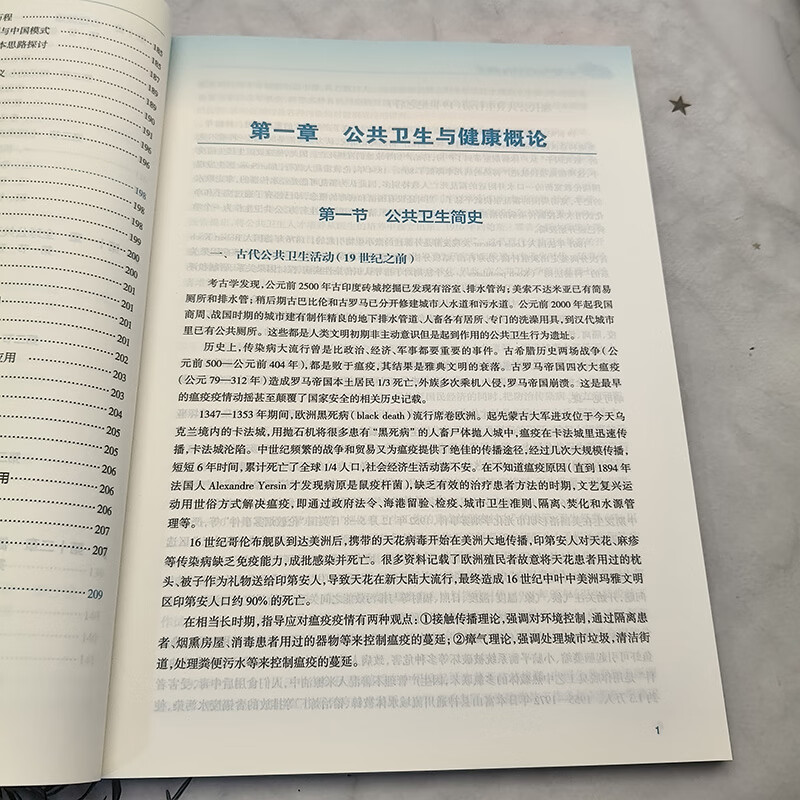 历程
与中国模式
185
本思路探讨
185
187
义
189
189
190
191
196
196
198
198
198
199
200
200
201
201
201
202
应用
202
203
204
204
205
205
用
206
206
206
207
207
209
第一章 公共卫生与健康概论
第一节 公共卫生简史
一、古代公共卫生活动(19 世纪之前)
考古学发现,公元前 2500 年古印度砖城挖掘已发现有浴室、排水管沟;美索不达米亚已有简易
厕所和排水管;稍后期古巴比伦和古罗马已分开修建城市人水道和污水道。公元前 2000 年起我国
商周、战国时期的城市建有制作精良的地下排水管道、人畜各有居所、专门的洗澡用具,到汉代城市
里已有公共厕所。这些都是人类文明初期非主动意识但是起到作用的公共卫生行为遗址。
历史上,传染病大流行曾是比政治、经济、军事都要重要的事件。古希腊历史两场战争(公
元前 500—公元前 404 年),都是败于瘟疫,其结果是雅典文明的衰落。古罗马帝国四次大瘟疫
(公元 79—312 年)造成罗马帝国本土居民 1/3 死亡,外族多次乘机人侵,罗马帝国崩溃。这是最早
的瘟疫疫情动摇甚至颠覆了国家安全的相关历史记载。
1347—1353 年期间,欧洲黑死病(black death)流行席卷欧洲。起先蒙古大军进攻位于今天乌
克兰境内的卡法城,用抛石机将很多患有“黑死病”的人畜尸体抛人城中,瘟疫在卡法城里迅速传
播,卡法城沦陷。中世纪频繁的战争和贸易又为瘟疫提供了绝佳的传播途径,经过几次大规模传播,
短短 6 年时间,累计死亡了全球 1/4 人口,社会经济生活动荡不安。在不知道瘟疫原因(直到 1894 年
法国人 Alexandre Yersin 才发现病原是鼠疫杆菌),缺乏有效的治疗患者方法的时期,文艺复兴运
动用世俗方式解决瘟疫,即通过政府法令、海港留验、检疫、城市卫生准则、隔离、焚化和水源管
理等。
16 世纪哥伦布舰队到达美洲后,携带的天花病毒开始在美洲大地传播,印第安人对天花、麻疹
等传染病缺乏免疫能力,成批感染并死亡。很多资料记载了欧洲殖民者故意将天花患者用过的枕
头、被子作为礼物送给印第安人,导致天花在新大陆大流行,最终造成 16 世纪中叶中美洲玛雅文明
区印第安人口约 90% 的死亡。
在相当长时期,指导应对瘟疫疫情有两种观点:①接触传播理论,强调对环境控制,通过隔离患
者、烟熏房屋、消毒患者用过的器物等来控制瘟疫的蔓延;②瘴气理论,强调处理城市垃圾,清洁街
道,处理粪便污水等来控制瘟疫的蔓延。
1